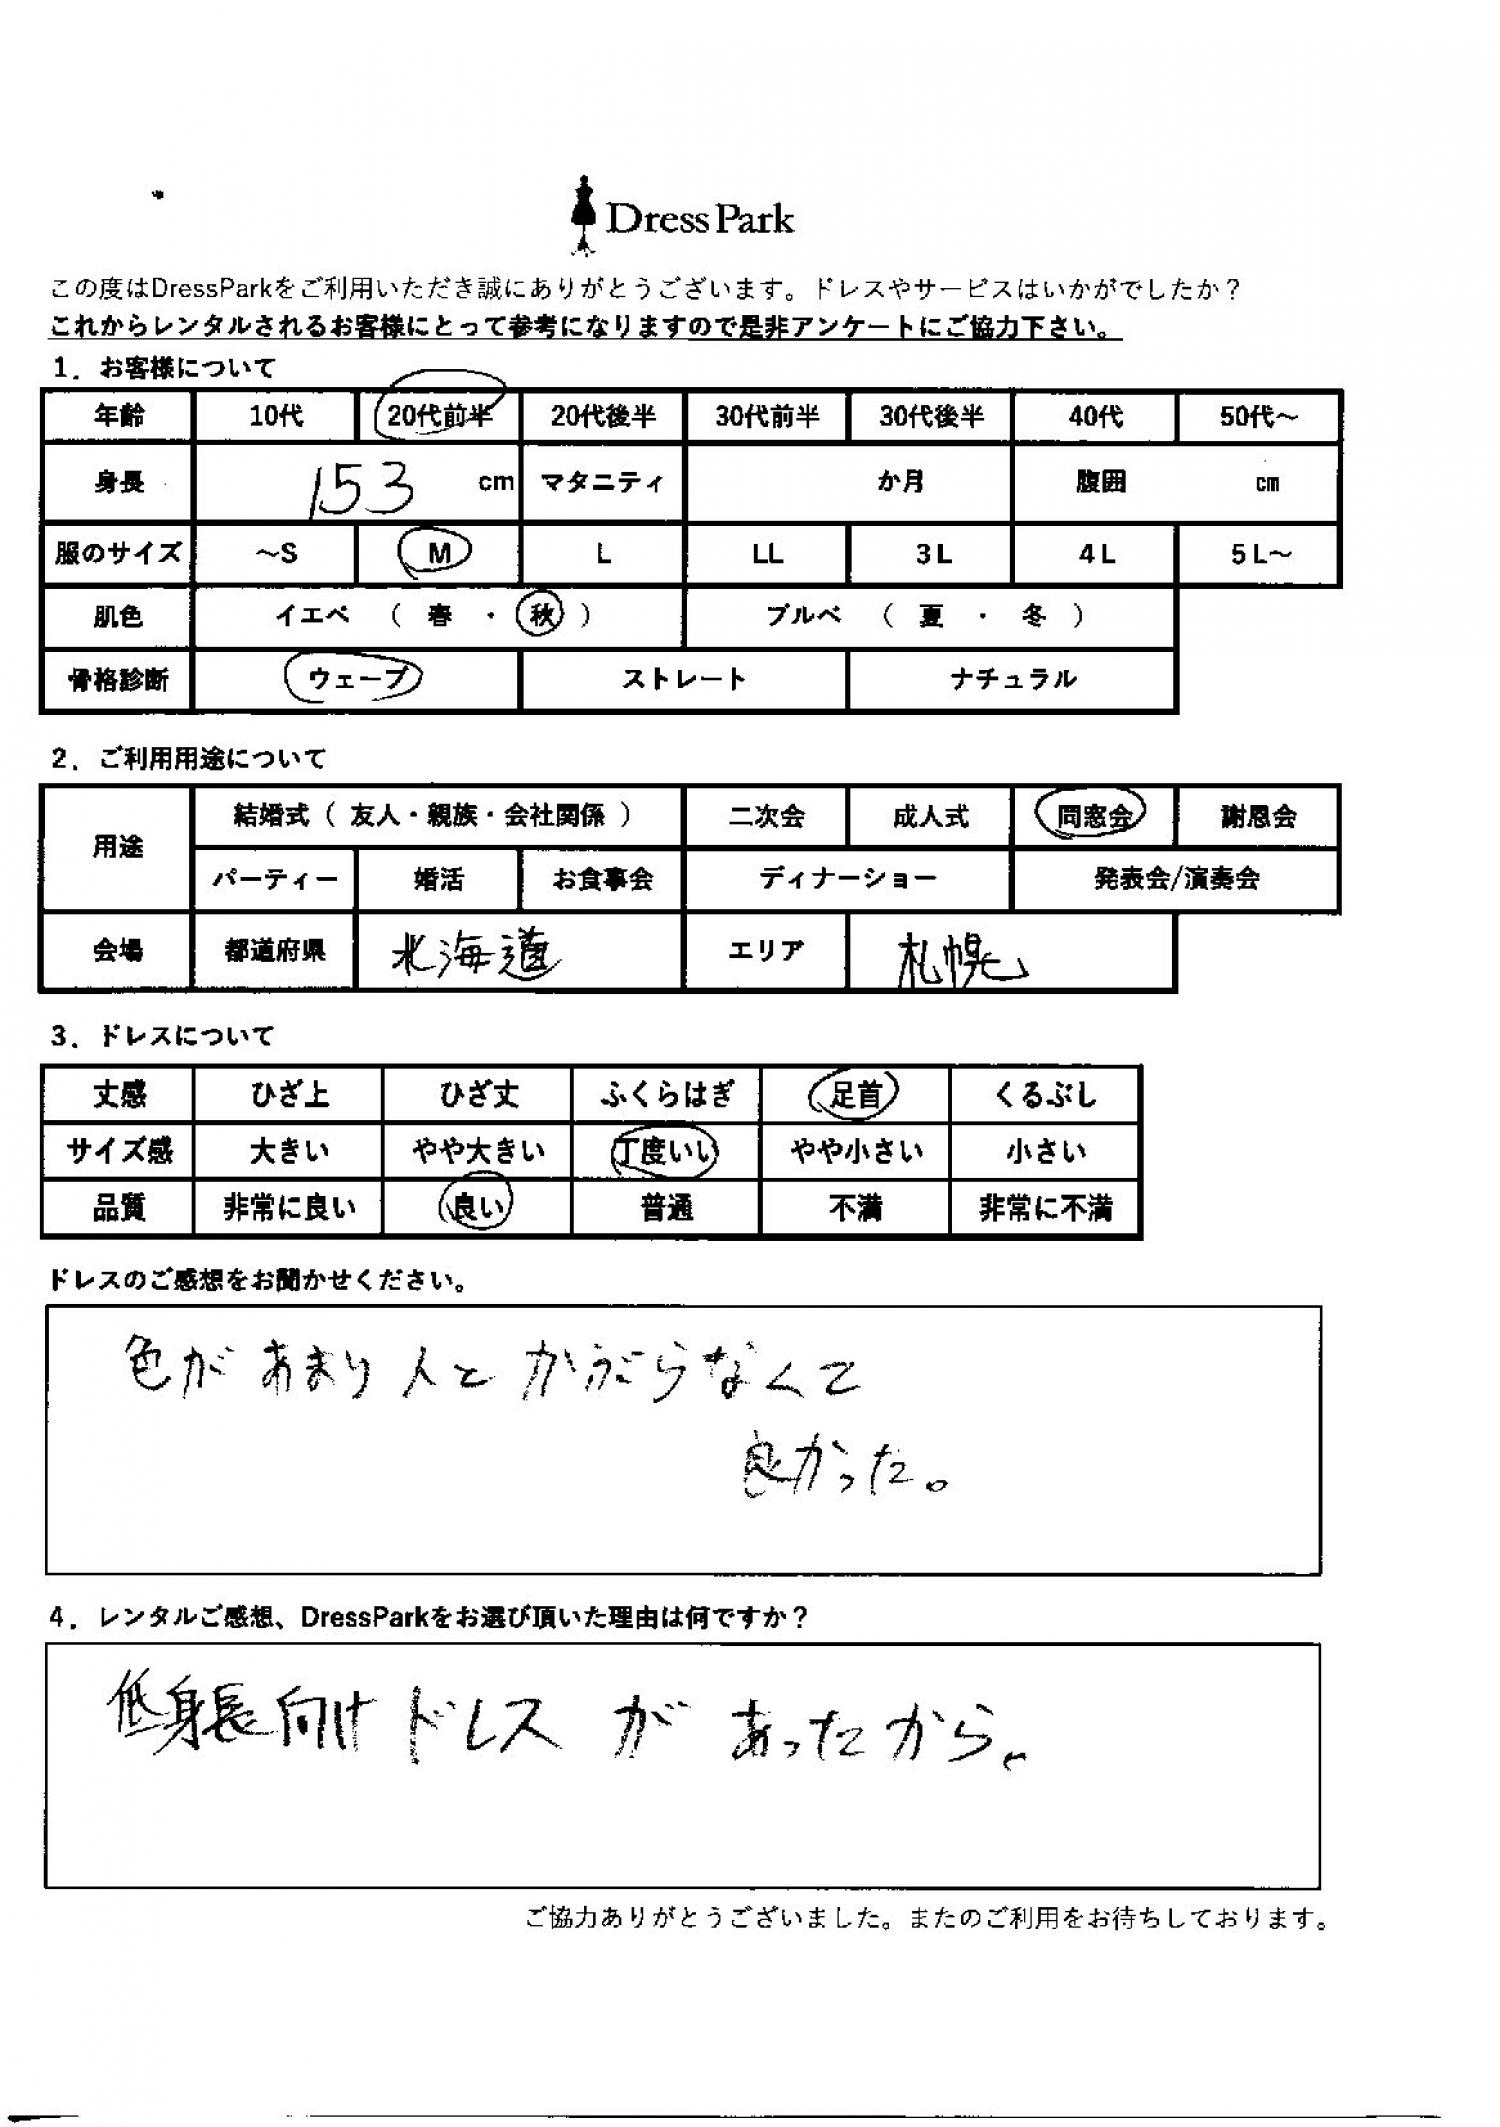 DressPark
この度はDressParkをご利用いただき誠にありがとうございます。ドレスやサービスはいかがでしたか？
これからレンタルされるお客様にとって参考になりますので是非アンケートにご協力下さい。
1．お客様について
年齢 10代 20代前半 20代後半 30代前半 30代後半 40代 50代～
身長 153 cm マタニティ か月 腹囲 cm
服のサイズ ～S M L LL 3L 4L 5L～
肌色 イエベ （ 春 ・ 秋 ） ブルベ （ 夏 ・ 冬 ）
骨格診断 ウェーブ ストレート ナチュラル
2．ご利用用途について
用途 結婚式（ 友人・親族・会社関係 ） 二次会 成人式 同窓会 謝恩会
パーティー 婚活 お食事会 ディナーショー 発表会/演奏会
会場 都道府県 北海道 エリア 札幌
3．ドレスについて
丈感 ひざ上 ひざ丈 ふくらはぎ 足首 くるぶし
サイズ感 大きい やや大きい 丁度いい やや小さい 小さい
品質 非常に良い 良い 普通 不満 非常に不満
ドレスのご感想をお聞かせください。
色があまり人とかぶらなくて
良かった。
4．レンタルご感想、DressParkをお選び頂いた理由は何ですか？
低身長向けドレスがあったから。
ご協力ありがとうございました。またのご利用をお待ちしております。